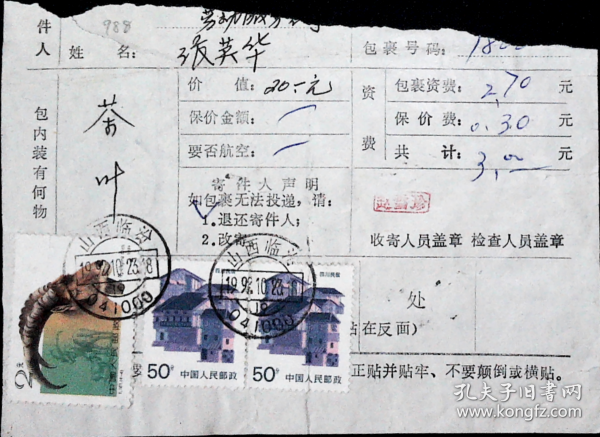 988
件人 姓 名: 张英华 包裹号码:
包内装有何物
茶叶
价 值: 20.-元
保价金额:
要否航空:
资费
包裹资费: 2.70 元
保价费: 0.30 元
共 计: 3.00 元
寄件人声明
如包裹无法投递,请:
1.退还寄件人;
2.改寄
收寄人员盖章 检查人员盖章
山西临汾
10.23.18
041000
山西临汾
10.23.18
041000
处
贴在反面)
正贴并贴牢、不要颠倒或横贴。
2元
50分 中国人民邮政
四川民居
50分 中国人民邮政
孔夫子旧书网
www.kongfz.com